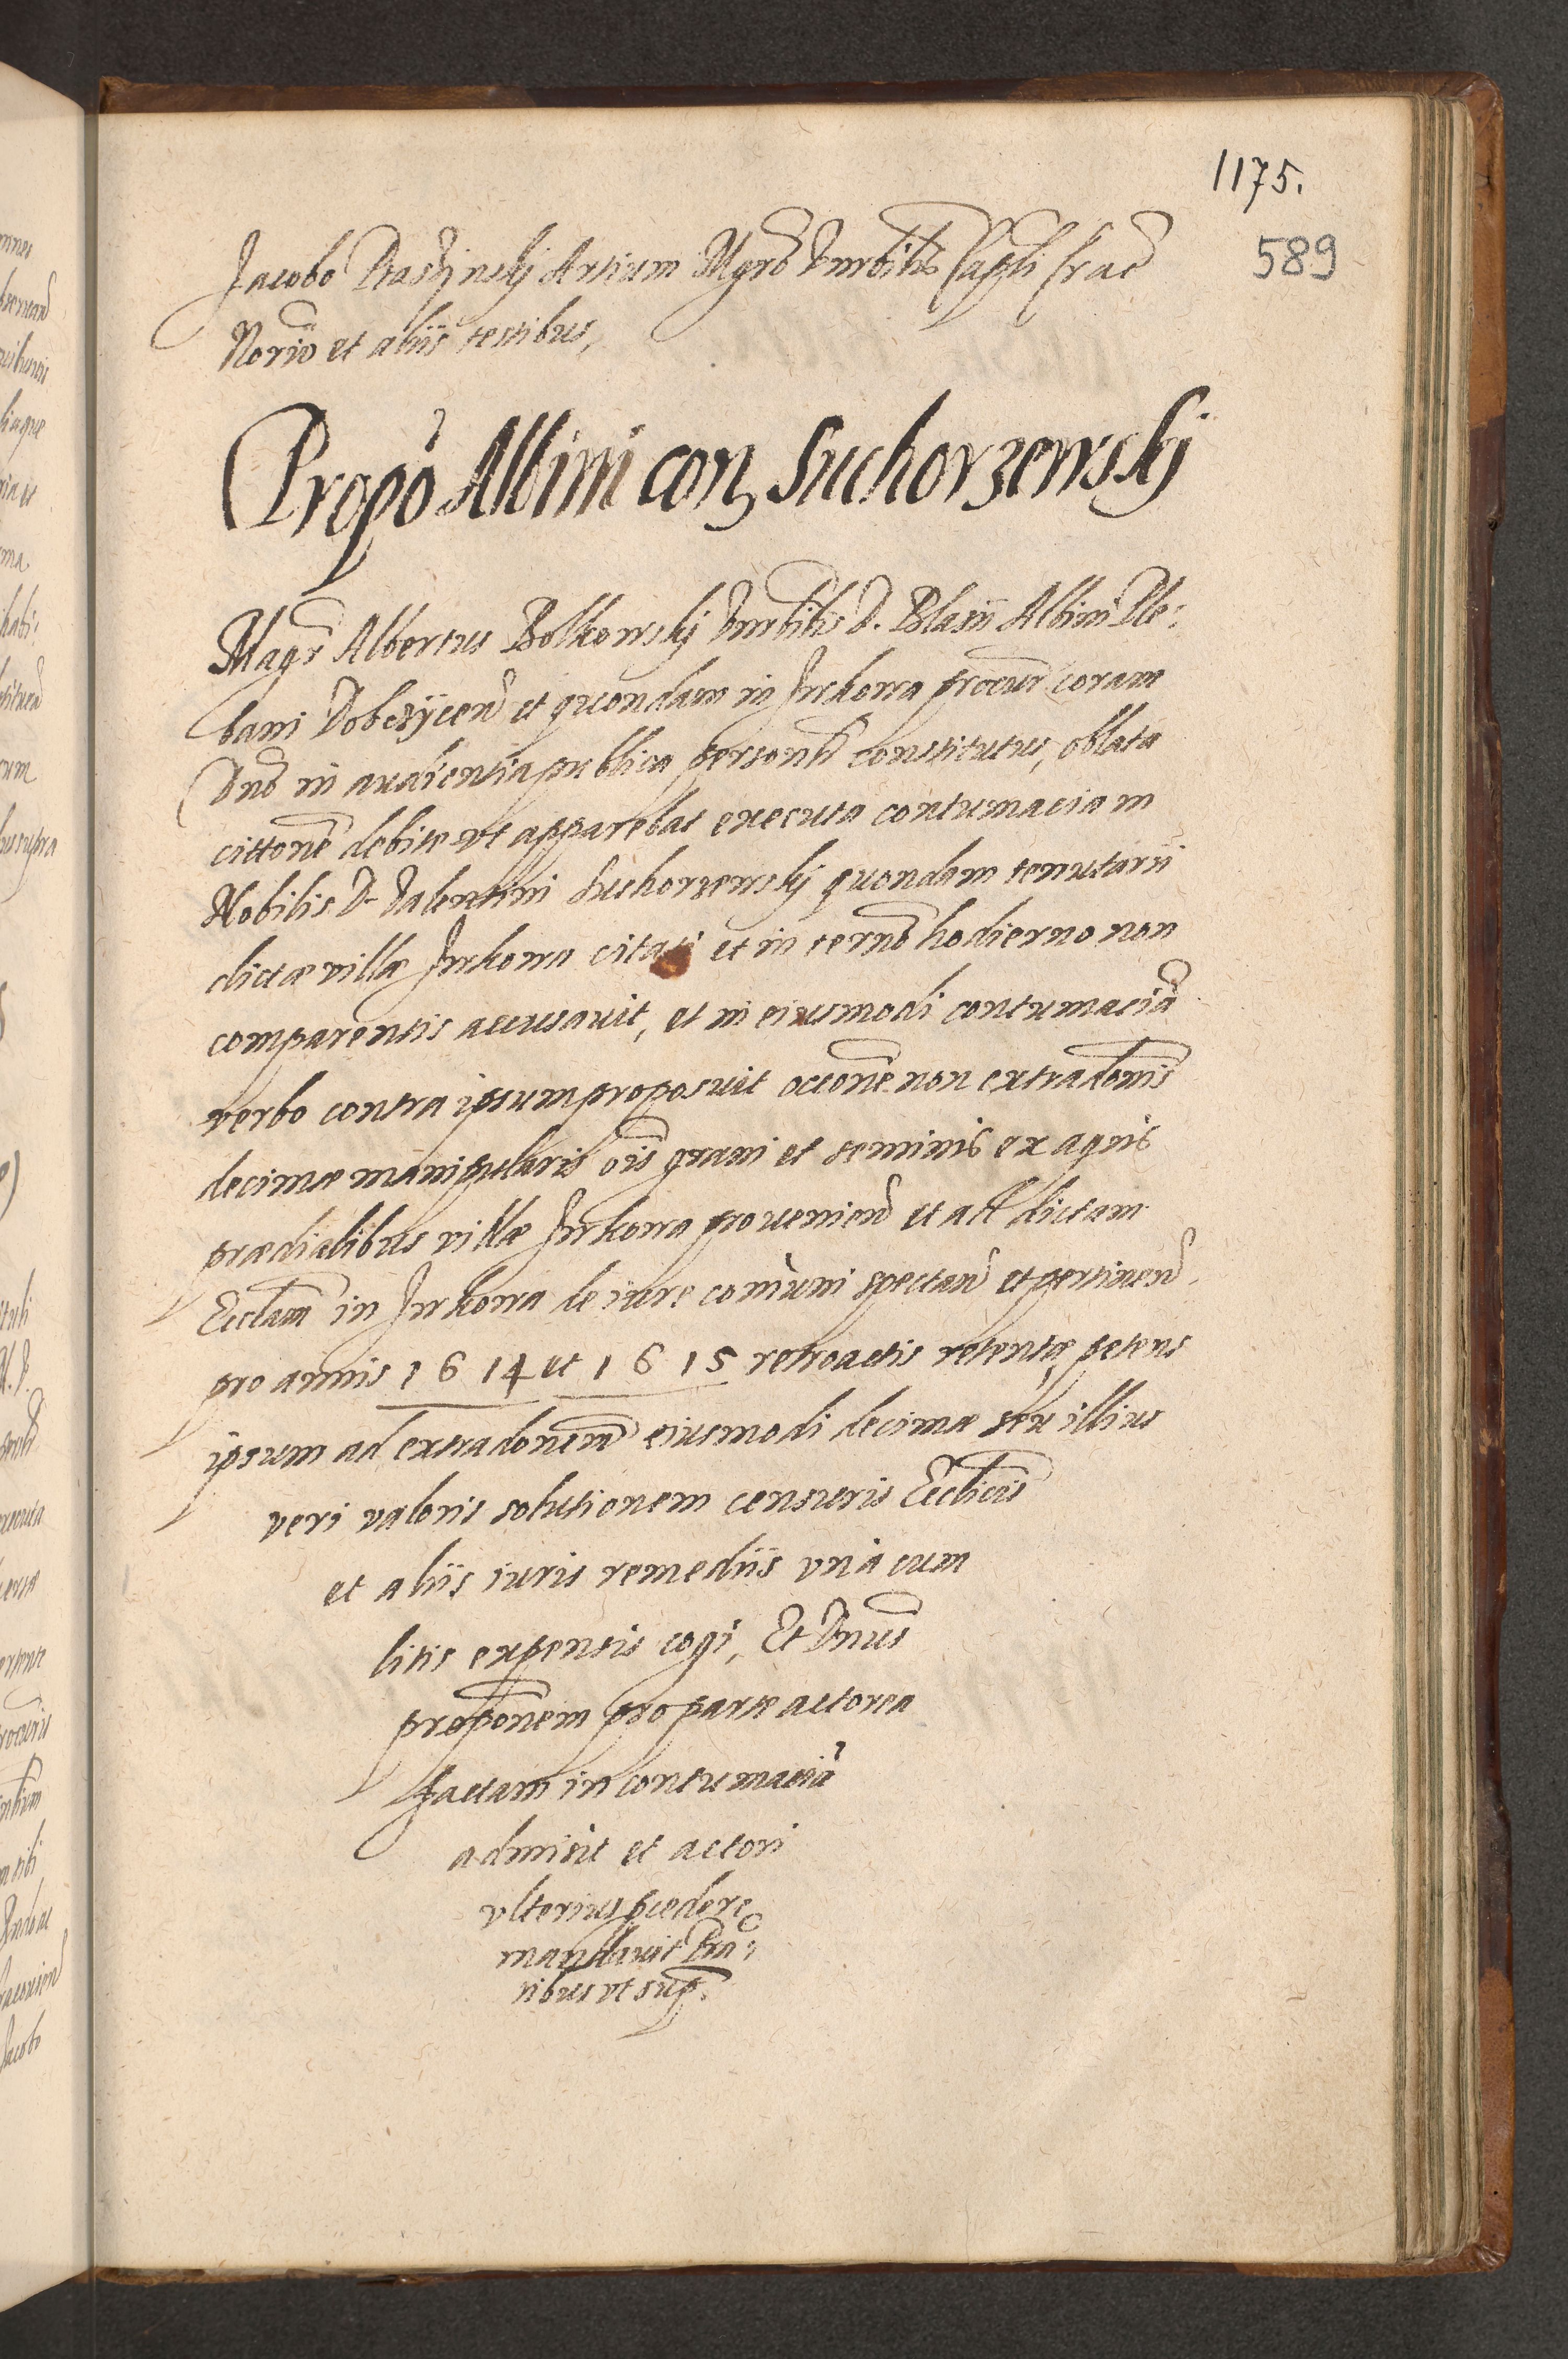 1175.
589
Jacobo Praszinskj Artium Mgro Vnrbilis Capli Crac
Norio et aliis testibus,
Propo Albini con Suchorzewskj
Magr Albertus Bolkowskj Vnrbilis D. Blasii Albini Ple:
bani Dobczycen et quondam in Jrkowa procur coram
Dno in audientia publica personlr constitutus, oblata
cittone debite vt apparebat executa contumaciam
Nobilis D. Valentini Suchorzewskj quondam tenutarii
dictae villae Jrkowa citati et in termo hodierno non
comparentis accusauit, et in eiusmodi contumacia
verbo contra ipsum proposuit occone non extradonis
decimae manipularis ois grani et seminis ex agris
praedialibus villae Jrkowa prouenien et ad dictam
Ecclam in Jrkowa de iure comuni spectan et pertinen
pro annis 1614 et 1615 retroactis retentae, petens
ipsum ad extradonem eiusmodi decimae seu illius
veri valoris solutionem censuris Ecclicis
et aliis iuris remediis vna cum
litis expensis cogi, Et Dnus
proponem pro parte actorea
factam in contumacia
admisit et actori
vlterius pcedere
mandauit Pra:
tibus vt sup.